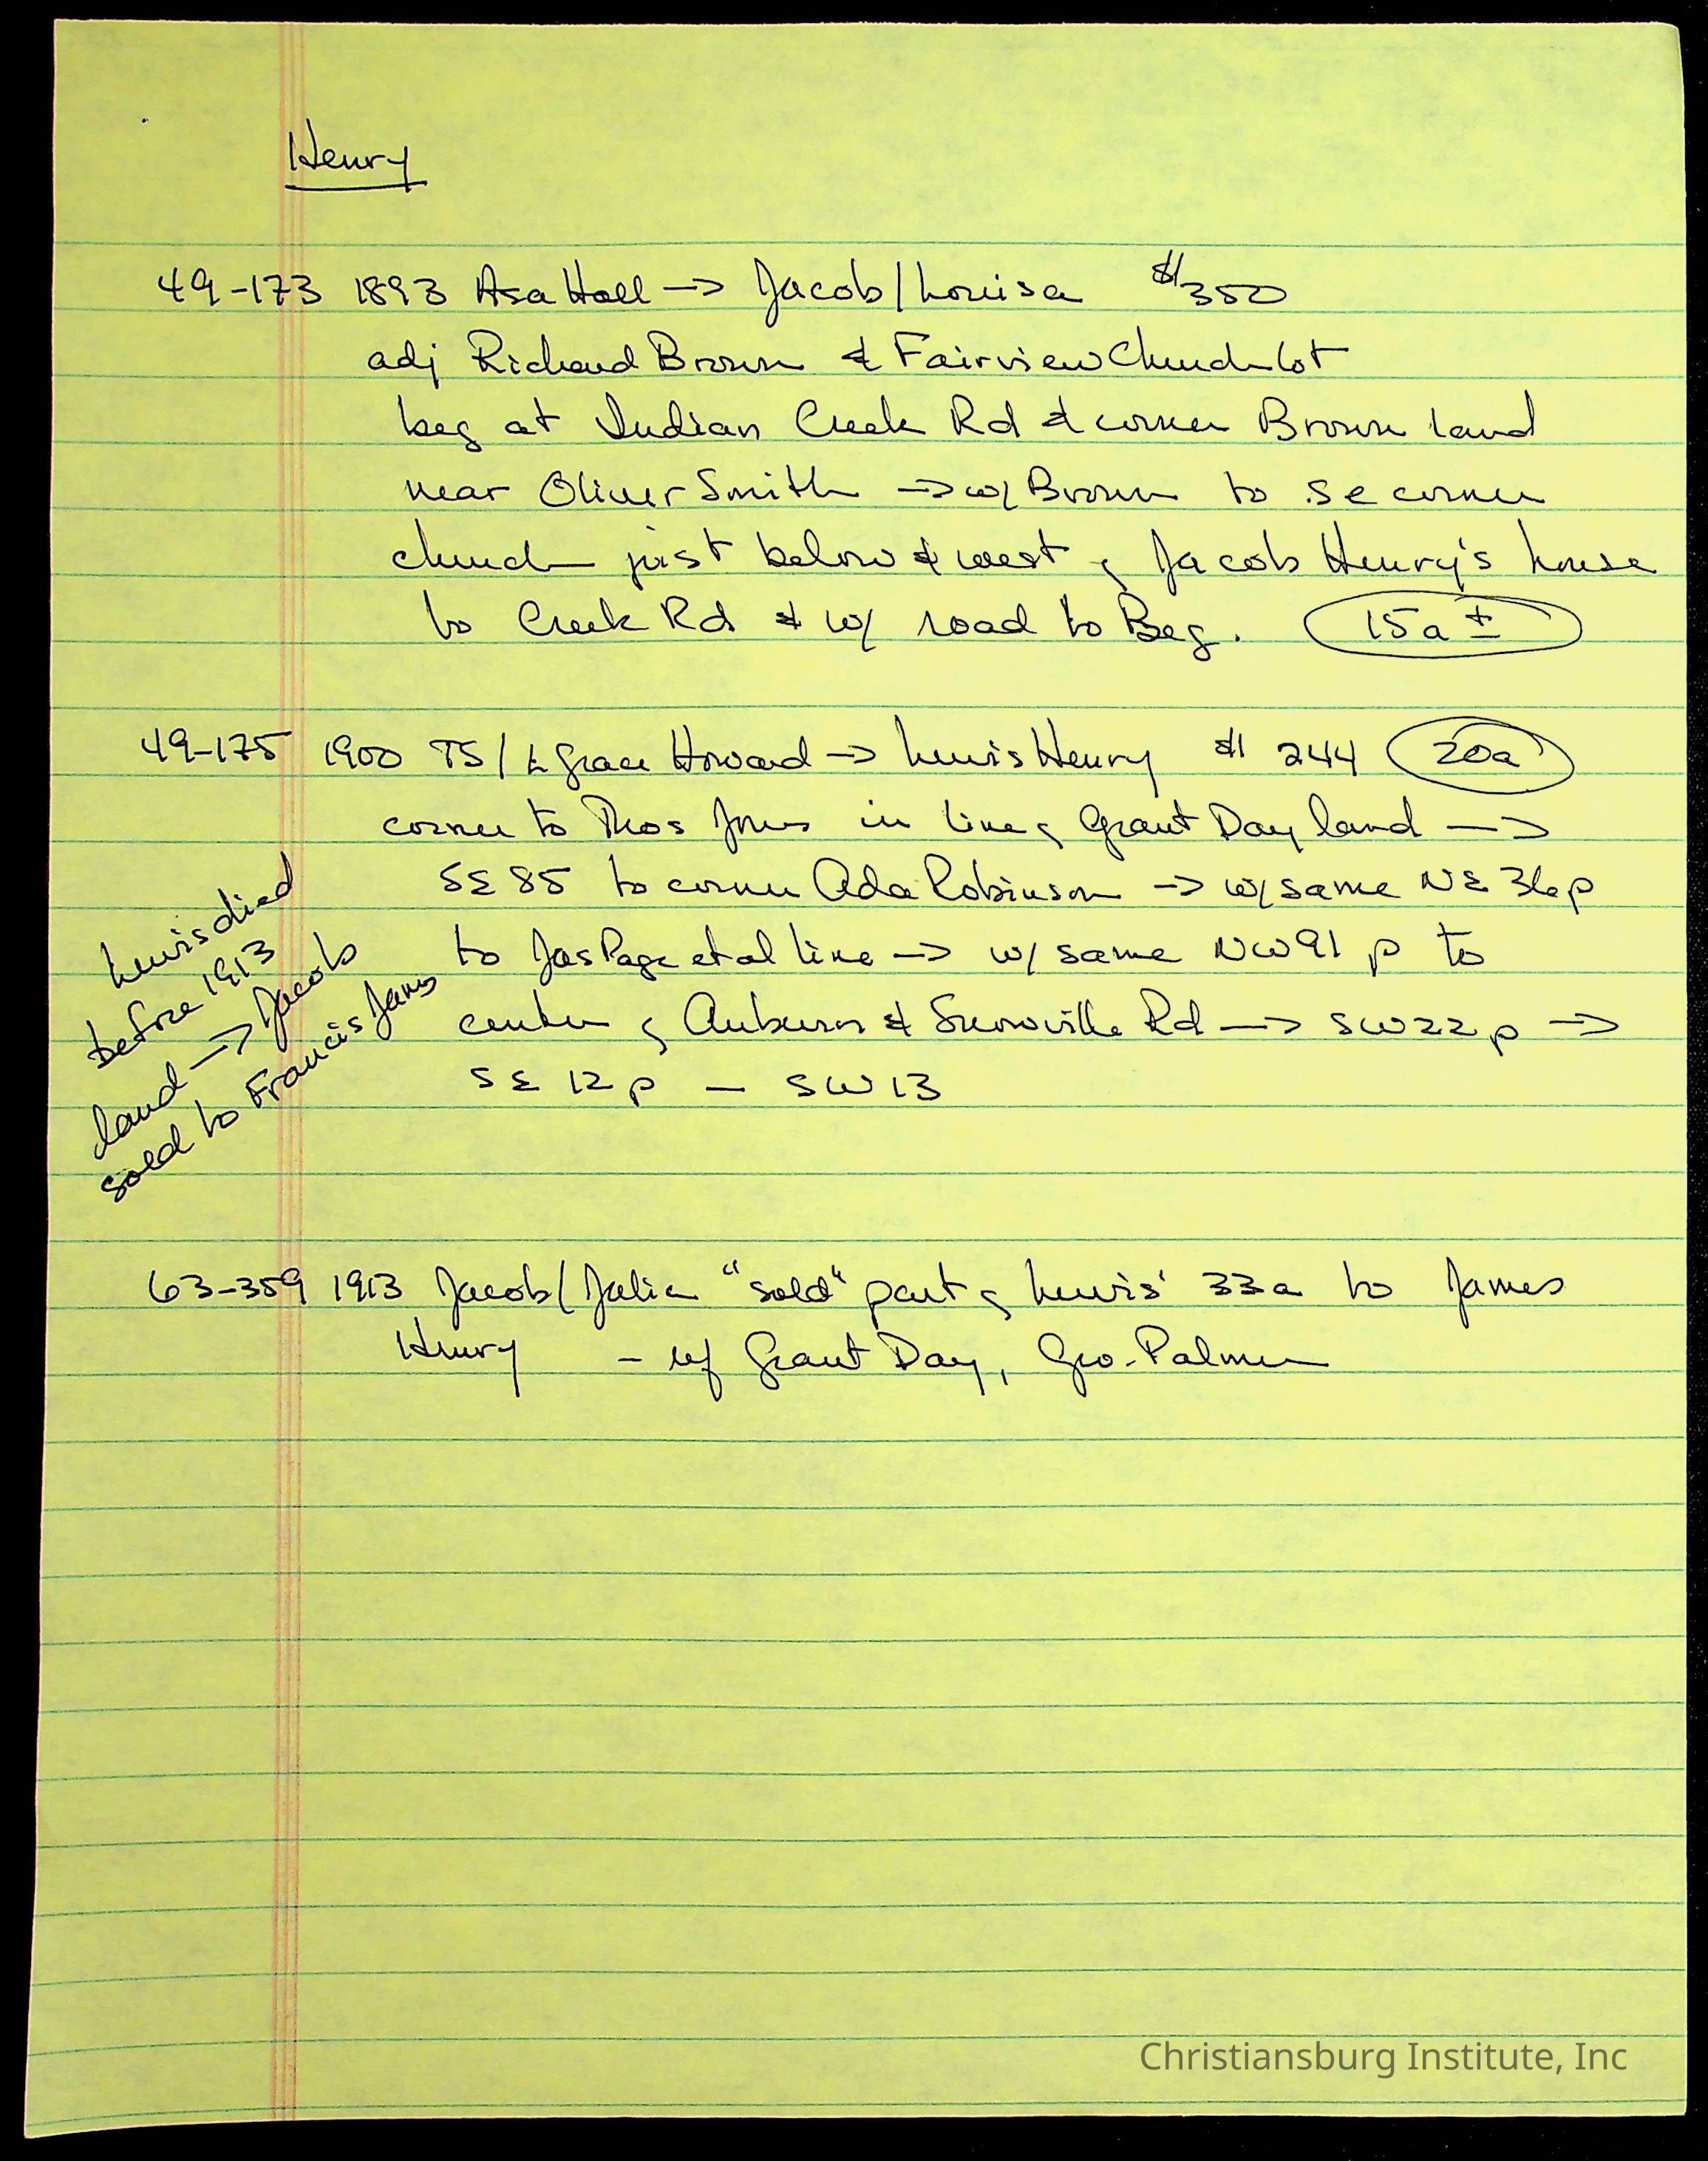 Henry
49-173 1893 Asa Hall → Jacob/Louisa $350
adj Richard Brown & Fairview Church lot
beg at Indian Creek Rd & corner Brown land
near Oliver Smith → w/ Brown to se corner
church just below & west of Jacob Henry's house
to Creek Rd & w/ road to Beg. 15a ±
49-175 1900 TS/L Grace Howard → Lewis Henry $244 20a
corner to Thos Jones in line of Grant Day land →
SE 85 to corner Ada Robinson → w/ same NE 36p
to Jas Page et al line → w/ same NW 91 p to
center of Auburn & Snowville Rd → SW 22 p →
SE 12 p – SW 13
Lewis died
before 1913
land → Jacob
sold to Francis James
63-359 1913 Jacob/Julia "sold" part of Lewis' 33a to James
Henry - w/ Grant Day, Geo. Palmer
Christiansburg Institute, Inc